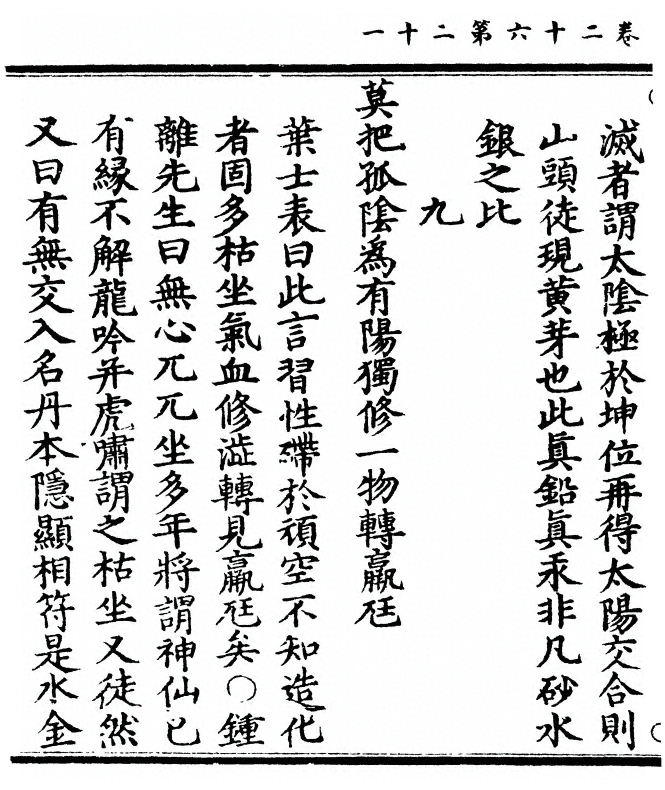 卷二十六第二十一
滅者謂太陰極於坤位再得太陽交合則
山頭徒現黄芽也此眞鉛眞汞非凡砂水
銀之比
九
莫把孤陰為有陽獨修一物轉羸尫
葉士表曰此言習性滯於頑空不知造化
者固多枯坐氣血修澁轉見羸尫矣〇鍾
離先生曰無心兀兀坐多年將謂神仙已
有縁不解龍吟并虎嘯謂之枯坐又徒然
又曰有無交入名丹本隱顯相符是水金